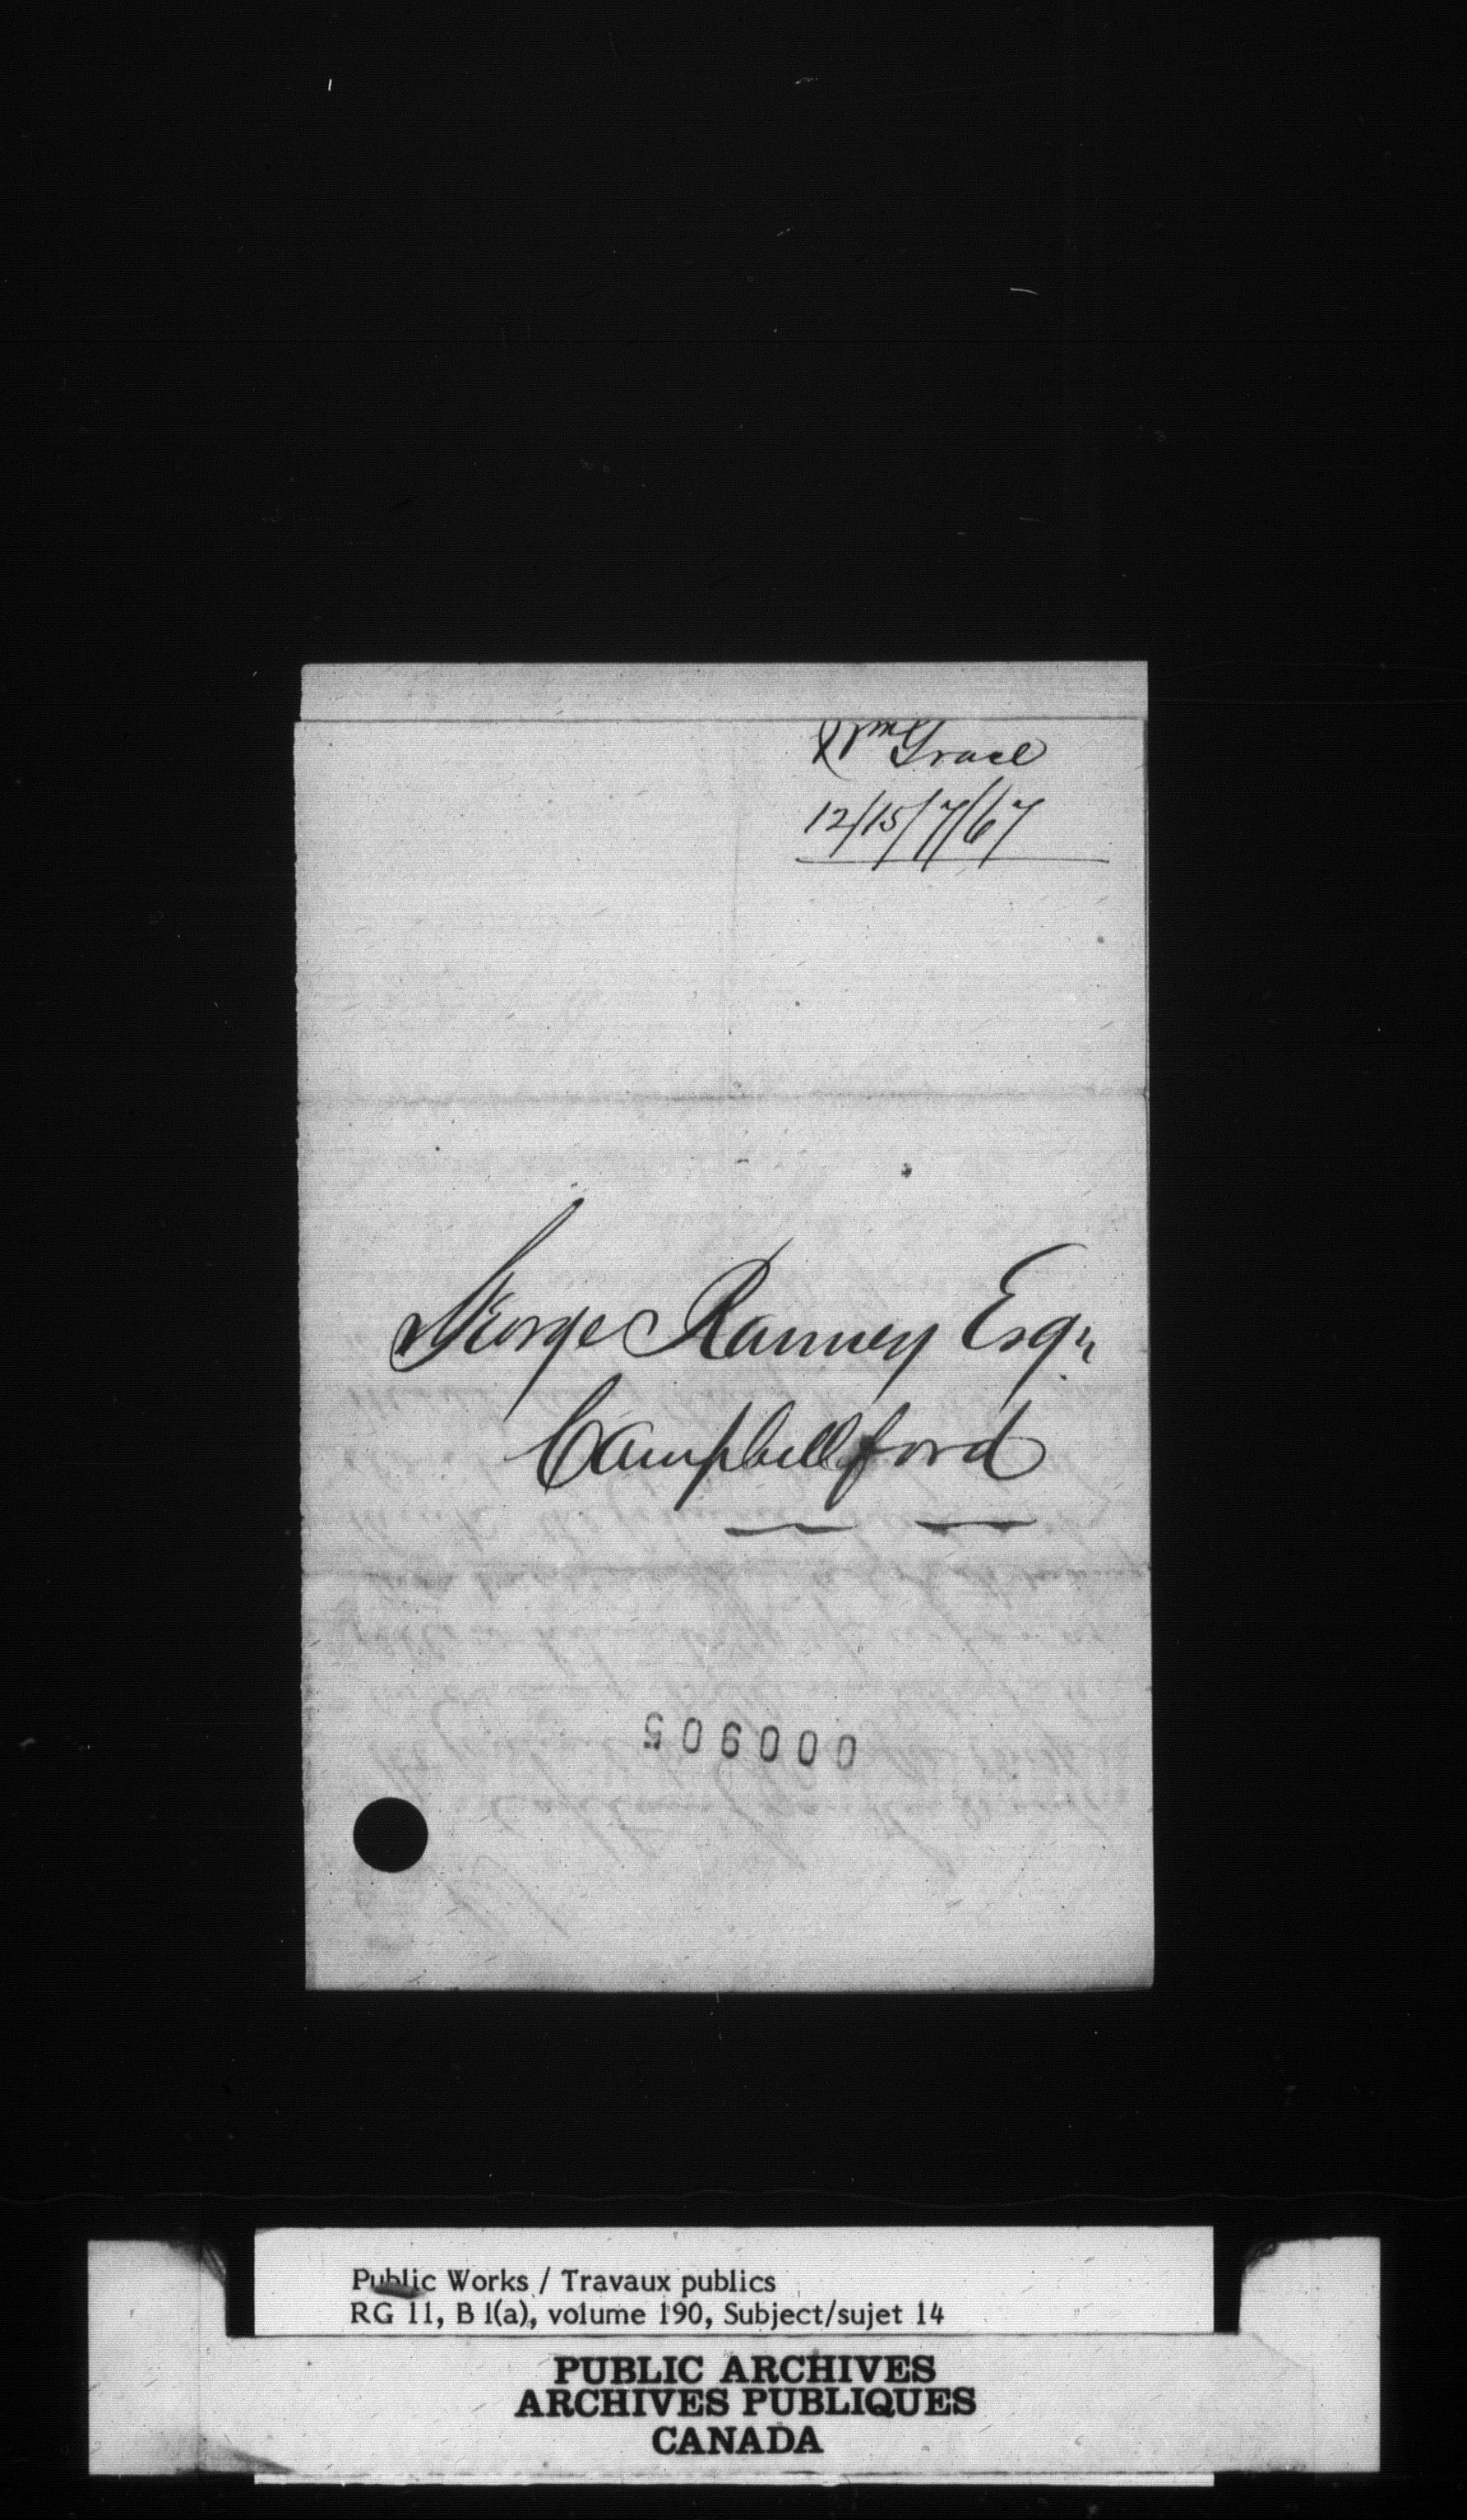 Wm Grace
12/15/7/67
George Ranney Esqr
Campbellford
000905
Public Works / Travaux publics
RG 11, B 1(a), volume 190, Subject/sujet 14
PUBLIC ARCHIVES
ARCHIVES PUBLIQUES
CANADA